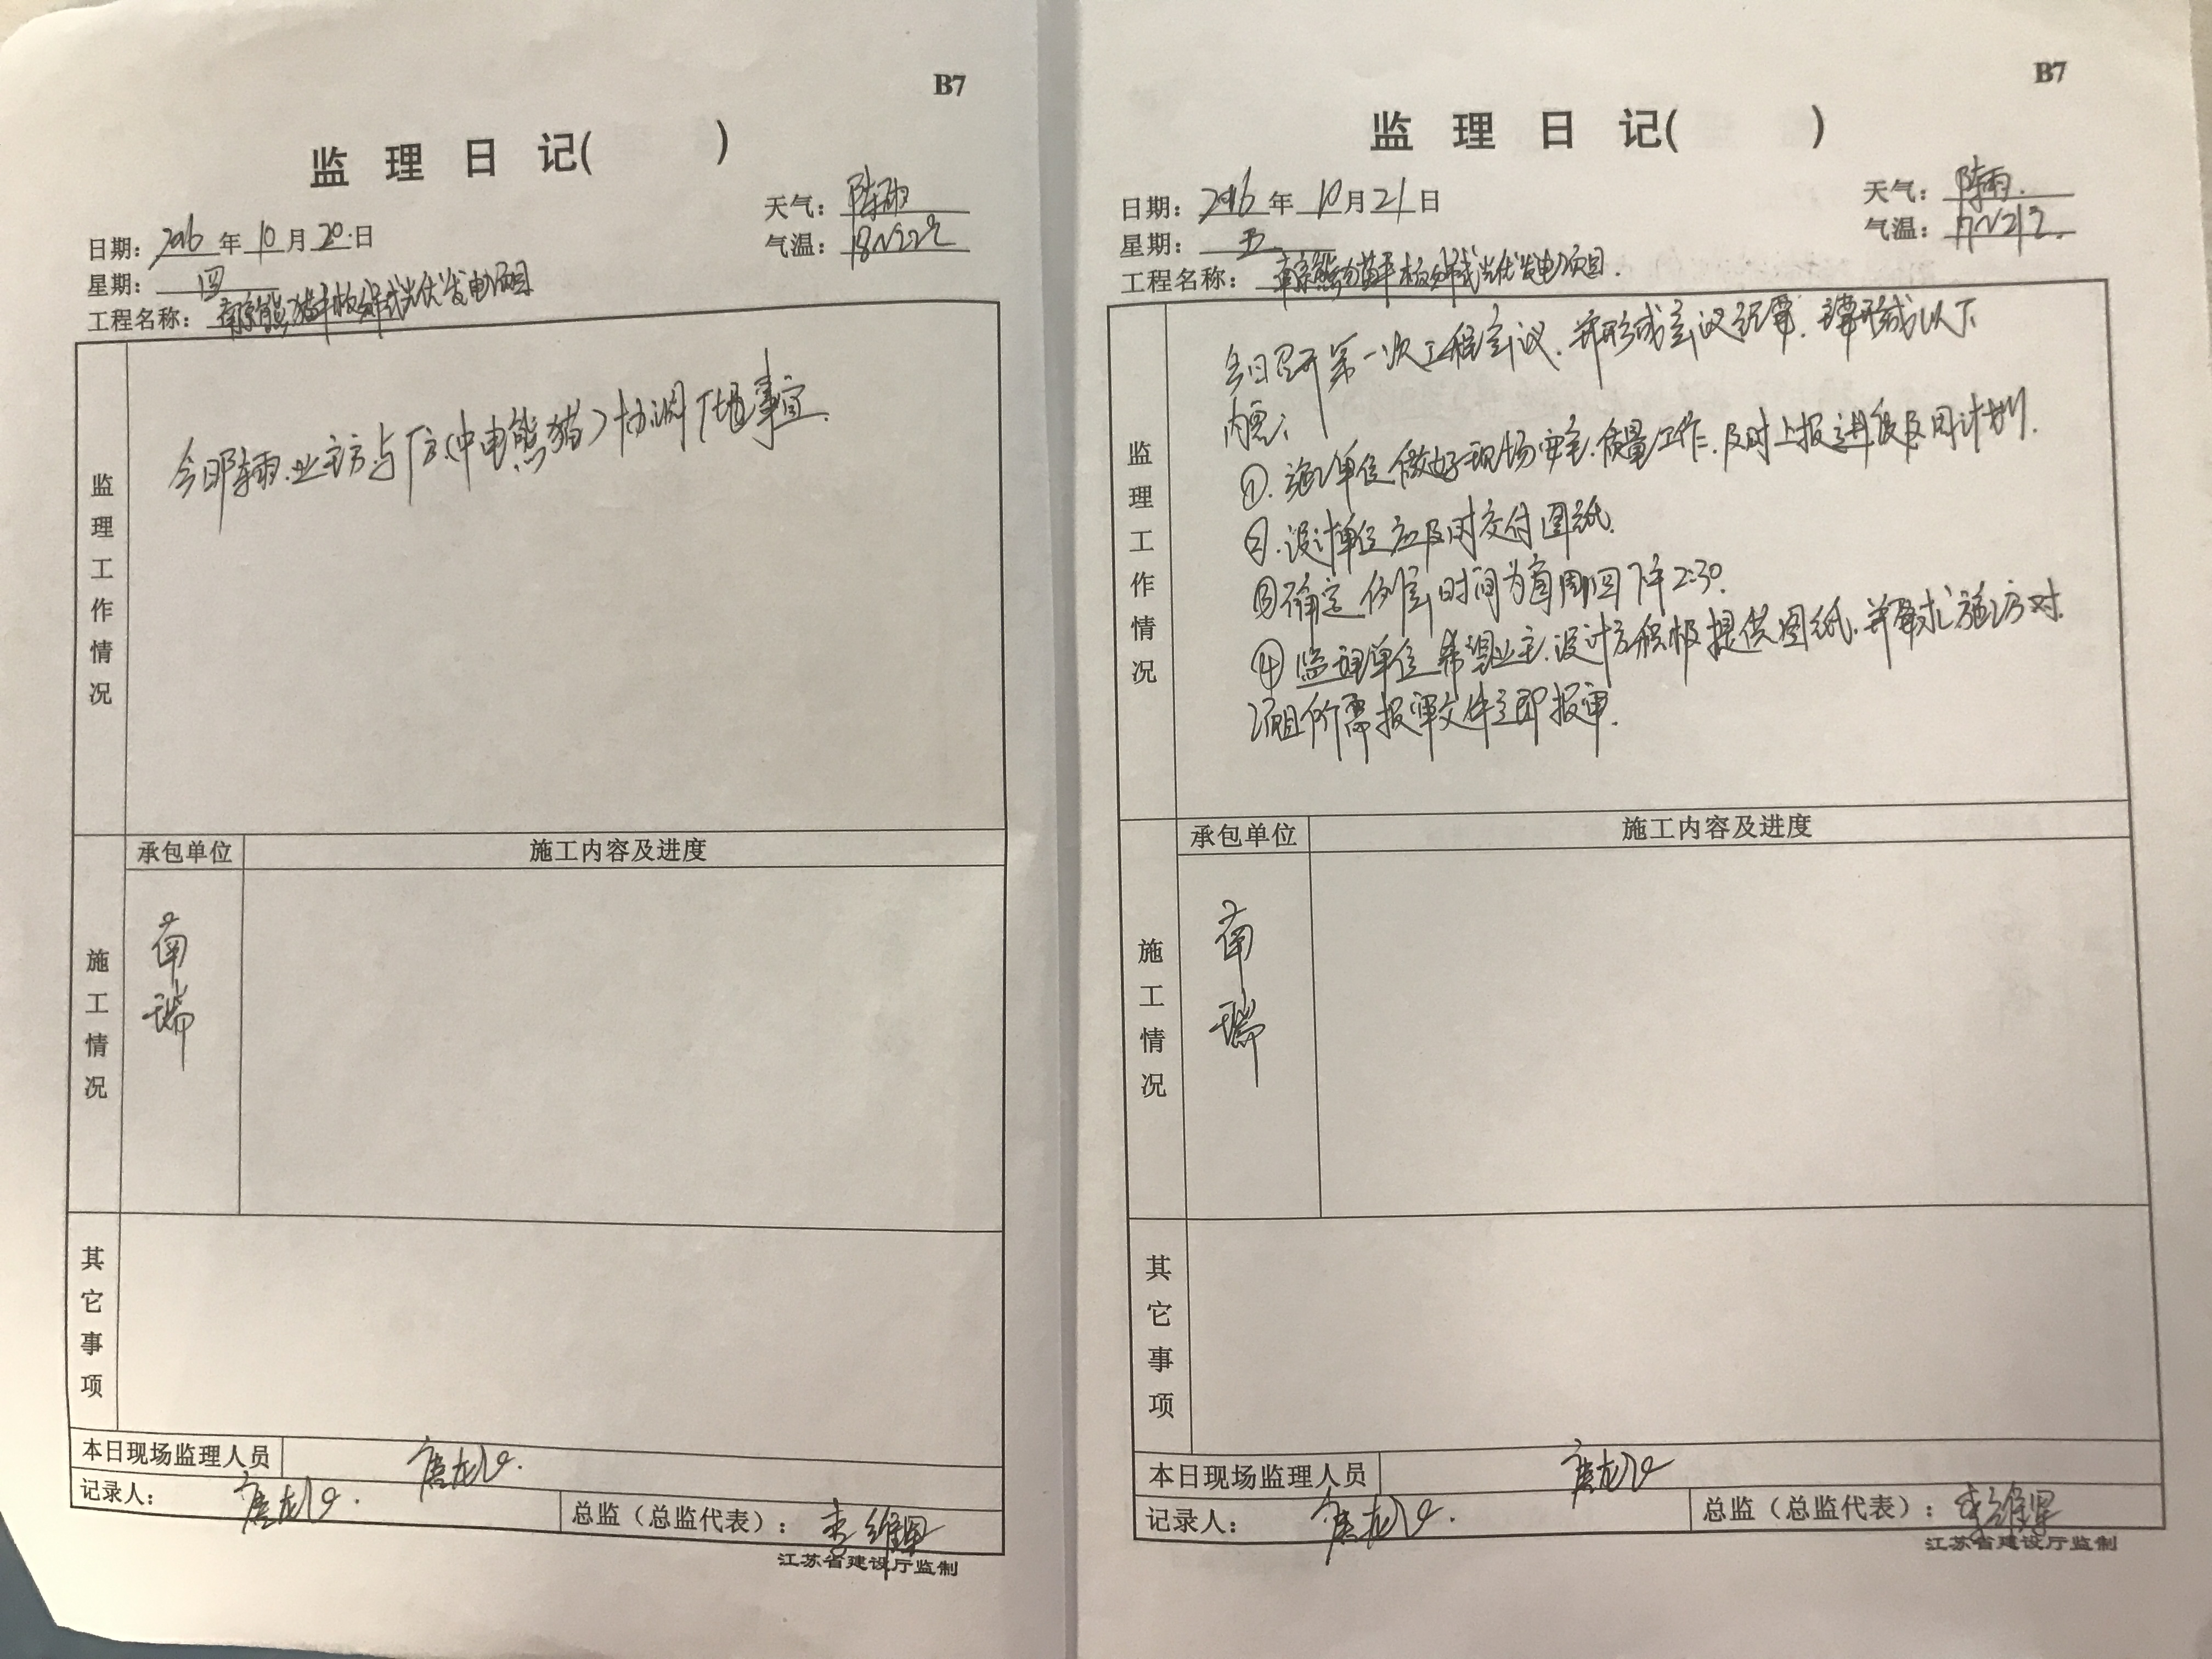 B7
监理日记( )
日期: 2016年10月20日
天气: 阵雨
星期: 四
气温: 18~22℃
工程名称: 南京熊猫平板分布式光伏发电项目
监理工作情况
今日阵雨.业主方与厂方(中电熊猫)协调厂地事宜.
承包单位
施工内容及进度
施工情况
南瑞
其它事项
本日现场监理人员
记录人:
总监(总监代表):
江苏省建设厅监制
B7
监理日记( )
日期: 2016年10月21日
天气: 阵雨.
星期: 五
气温: 17~21℃.
工程名称: 南京熊猫平板分布式光伏发电项目.
监理工作情况
今日召开第一次工程会议.并形成会议纪要.主要形成以下
内容:
①.施工单位做好现场安全.质量工作.及时上报进度及周计划.
②.设计单位应及时交付图纸.
③确定例会时间为每周四下午2:30.
④监理单位希望业主.设计方积极提供图纸.并要求施工方对
项目所需报审文件立即报审.
承包单位
施工内容及进度
施工情况
南瑞
其它事项
本日现场监理人员
记录人:
总监(总监代表):
江苏省建设厅监制